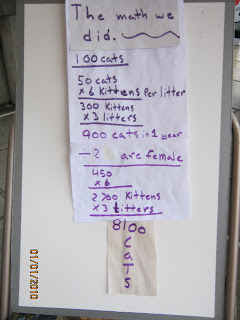 The math we
did.
100 cats
50 cats
x 6 Kittens Per litter
300 Kittens
x 3 litters
900 cats in 1 year
÷2 are female
450
x 6
2700 Kittens
x 3 Litters
8100
C
a
T
s
01/01/2010